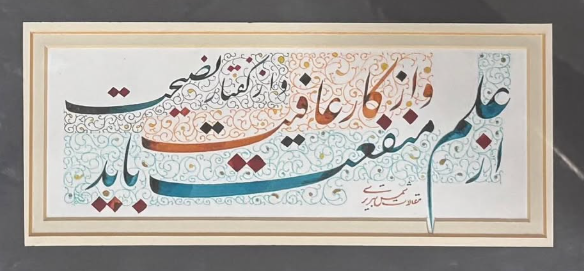 از علم منفعت باید
و از کار عافیت
و از گفتار نصیحت
مقالات شمس تبریزی